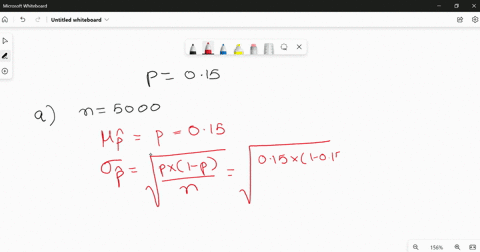 Microsoft Whiteboard
Untitled whiteboard
p = 0.15
a) n = 5000
μp̂ = p = 0.15
σp̂ = √(p×(1-p)/n) = √(0.15×(1-0.15
156%